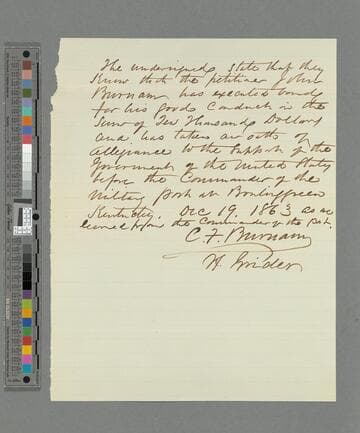 The undersigned, state that they
know that the petitioner John
Burnam has executed bond
for his good conduct in the
sum of Ten Thousand Dollars
and has taken an oath of
allegiance to the support of the
Government of the United States
before the Commander of the
Military post in Bowlinggreen
Kentucky. Dec 19. 1863 as we
learned from the Commander of the Post.
C. F. Burnam
H. Grider